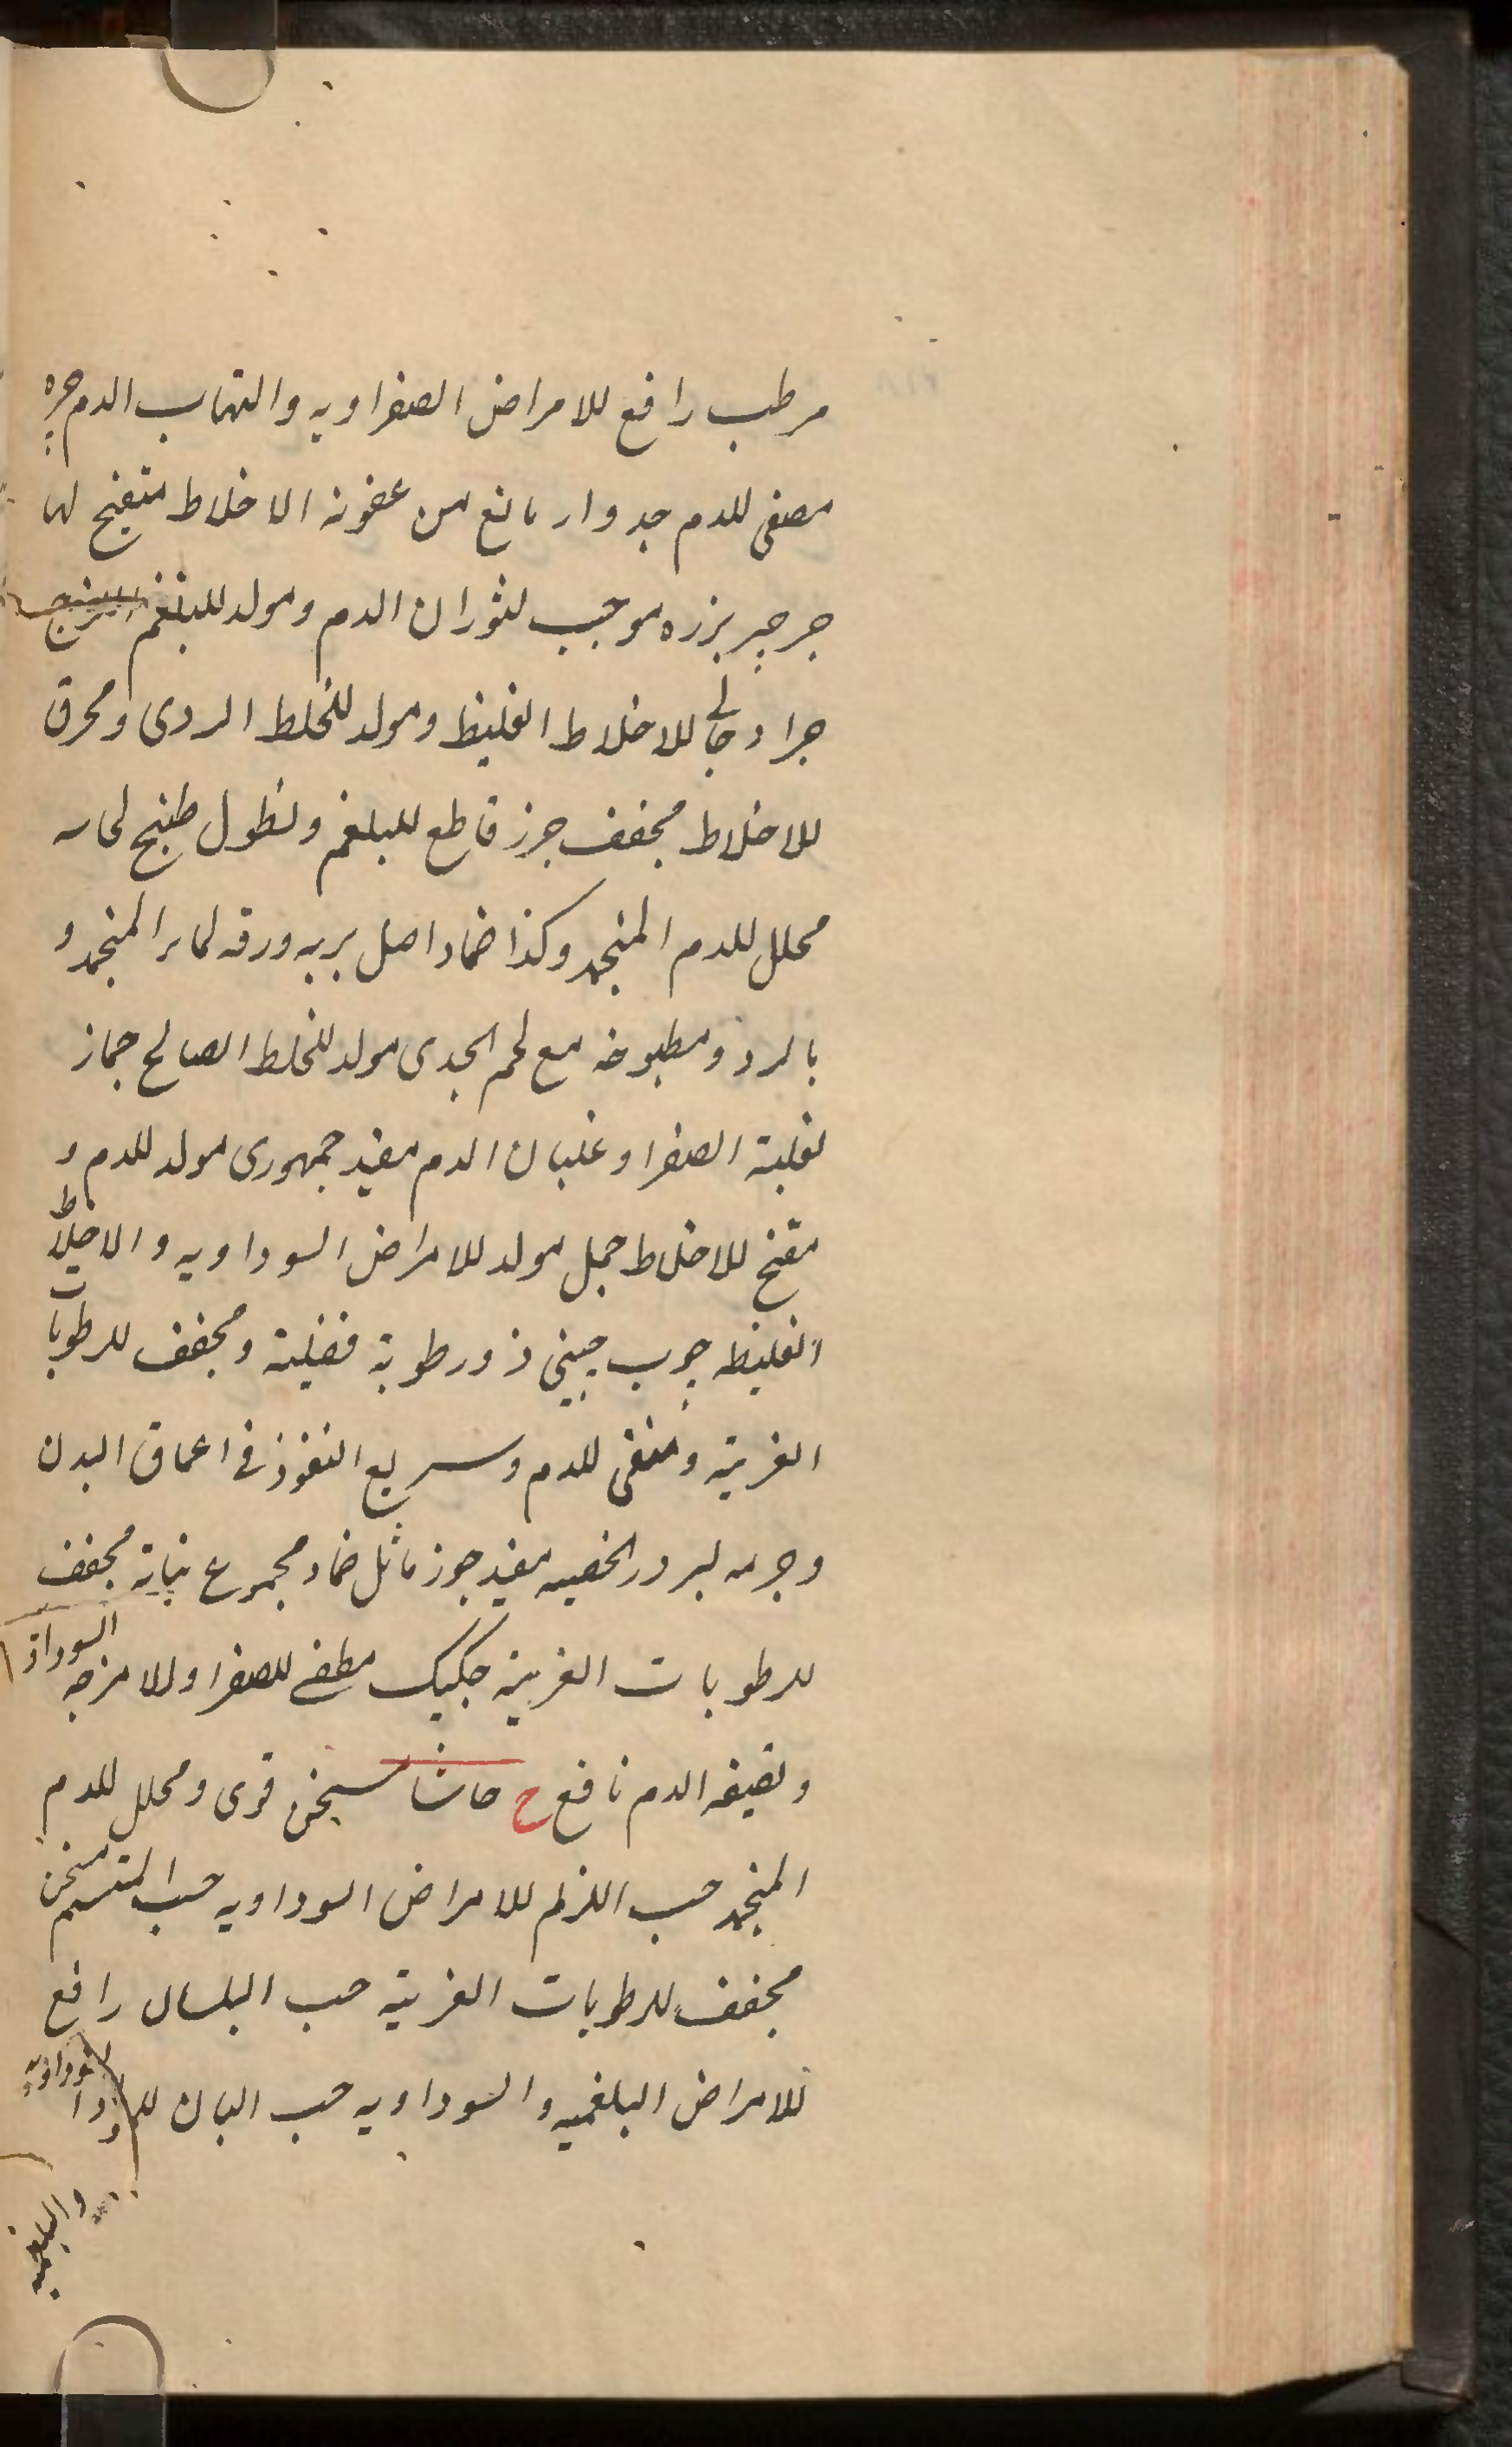 مرطب رافع للامراض الصفراويه والتهاب الدم
مصفی للدم جدوار مانع من عفونة الاخلاط منضج لها
جرجیر بزره موجب لثوران الدم ومولد للبلغم اللزج
جراد جالی للاخلاط الغلیظ ومولد للخلط الردی ومحرق
للاخلاط مجفف جرز قاطع للبلغم ونطول طبیخ لحاه
محلل للدم المنجمد وکذا ضماد اصل بریه ورقه المنجمد و
ومطبوخه مع لحم الجدی مولد للخلط الصالح جماز
لغلبة الصفرا وغلیان الدم مفید جمهوری مولد للدم و
مفتح للاخلاط جمل مولد للامراض السوداویه والاخلاط
الغلیظه جوب چینی ذو رطوبة فضلیة ومجفف للرطوبات
الغریبة ومنقی للدم وسریع النفوذ فی اعماق البدن
مفید جوز ماثل ضماد مجموع نباته مجفف
للرطوبات الغریبة جکیک مطفی للصفرا وللامزجه السوداویه
وتصفیه الدم نافع ح حاشا مسخن قوی ومحلل للدم
المنجمد حب الزلم للامراض السوداویه حب المنسم مسخن
مجفف للرطوبات الغریبة حب البلسان رافع
للامراض البلغمیه والسوداویه حب البان السوداویه
والبلغمیه